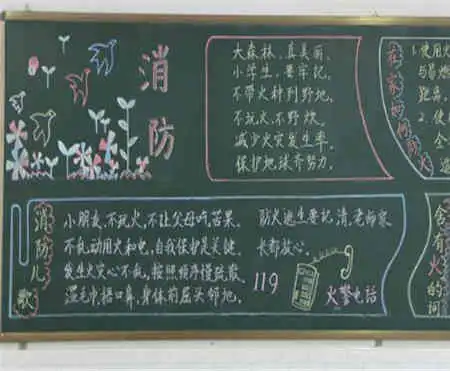 消防
大森林,真美丽。
小学生,要牢记。
不带火种到野地。
不玩火,不野炊,
减少火灾发生率,
保护地球齐努力。
在家如何防火
1.使用火
与易燃
距离。
2.使用
全
消防儿歌
小朋友,不玩火,不让父母听苦果。
不乱动用火和电,自我保护是关键。
发生火灾心不乱,按照顺序慢疏散。
湿毛巾捂口鼻,身体前屈头邻地。
防火逃生要记清,老师家
长都放心。
119
火警电话
含有火的词